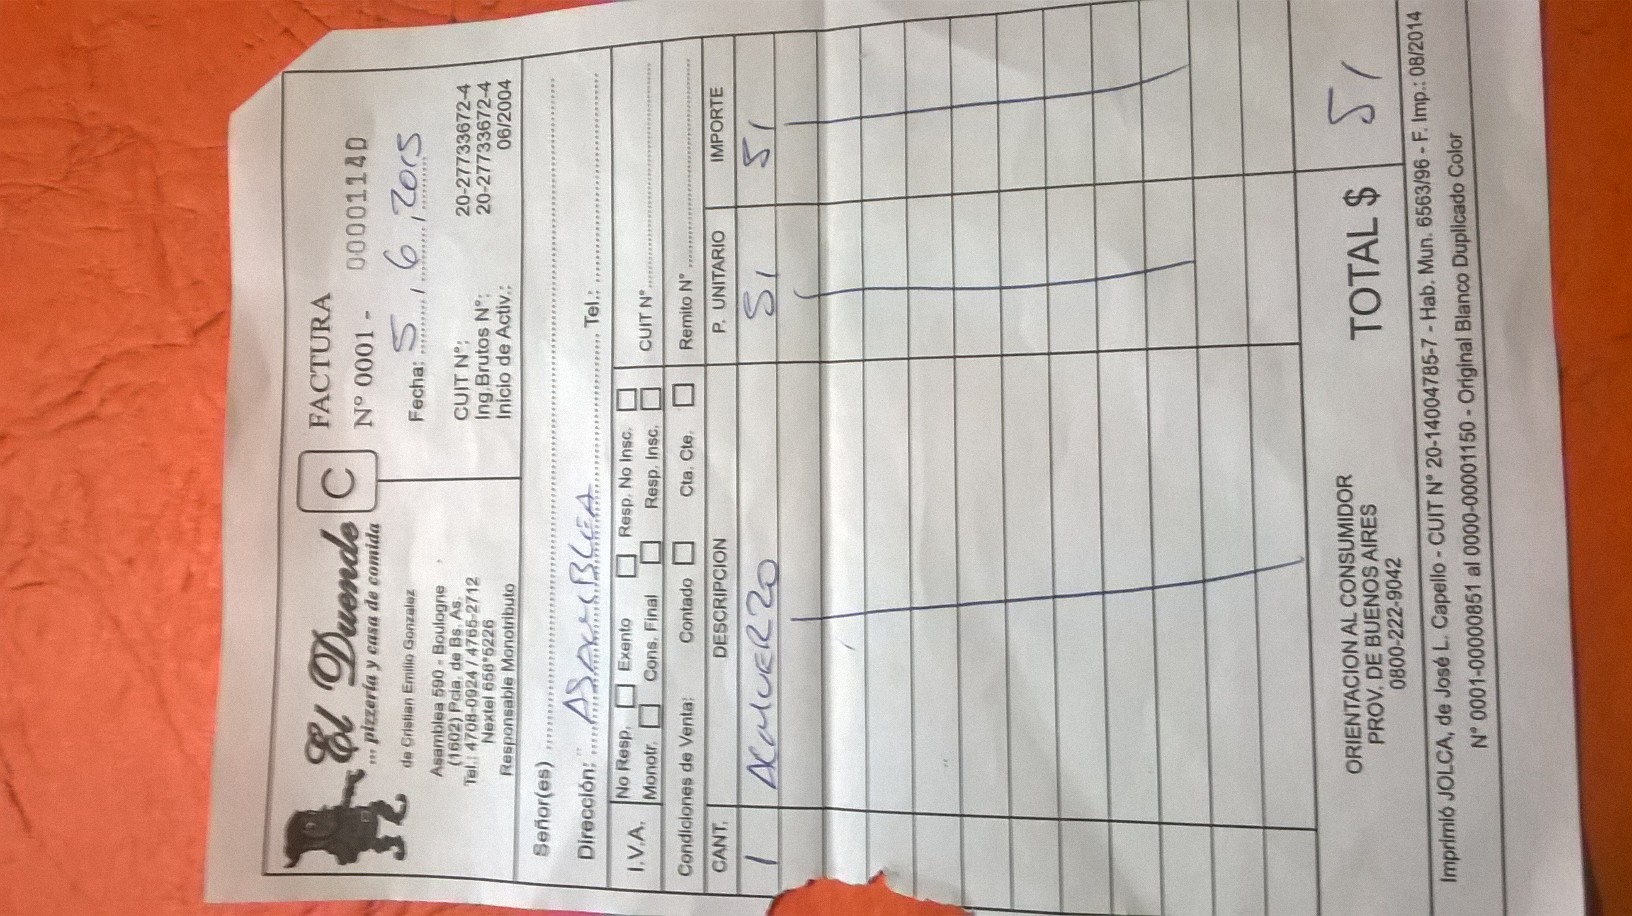 El Duende
... pizzería y casa de comida
de Cristian Emilio Gonzalez
Asamblea 590 - Boulogne
(1602) Pcia. de Bs. As.
Tel.: 4708-0924 / 4765-2712
Nextel 658*5226
Responsable Monotributo
C
FACTURA
Nº 0001 - 00001140
Fecha: 5 / 6 / 2015
CUIT Nº: 20-27733672-4
Ing.Brutos Nº: 20-27733672-4
Inicio de Activ.: 06/2004
Señor(es)
Dirección: ASAMBLEA Tel.:
I.V.A. No Resp. Exento Resp. No Insc.
Monotr. Cons. Final Resp. Insc. CUIT Nº
Condiciones de Venta: Contado Cta. Cte. Remito Nº
CANT. DESCRIPCION P. UNITARIO IMPORTE
1 ALMUERZO 51 51
ORIENTACION AL CONSUMIDOR
PROV. DE BUENOS AIRES
0800-222-9042
TOTAL $ 51
Imprimió JOLCA, de José L. Capello - CUIT Nº 20-14004785-7 - Hab. Mun. 6563/96 - F. Imp.: 08/2014
Nº 0001-00000851 al 0000-00001150 - Original Blanco Duplicado Color